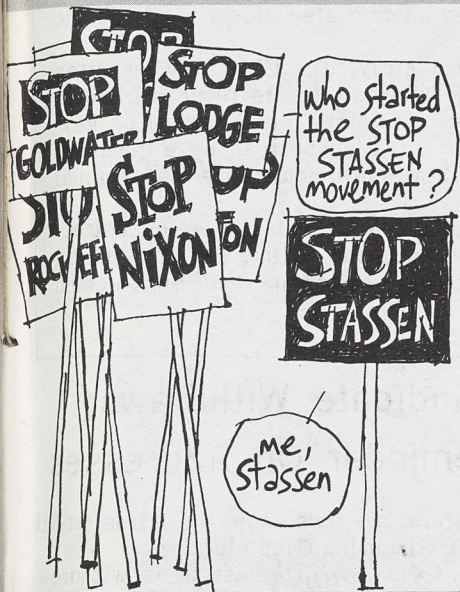 STOP
STOP
GOLDWATER
STOP
LODGE
STOP
ROCKEF
STOP
NIXON
OP
ON
who started
the STOP
STASSEN
movement ?
STOP
STASSEN
me,
stassen